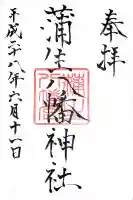 奉拝
蒲生八幡神社
平成二十八年六月十一日